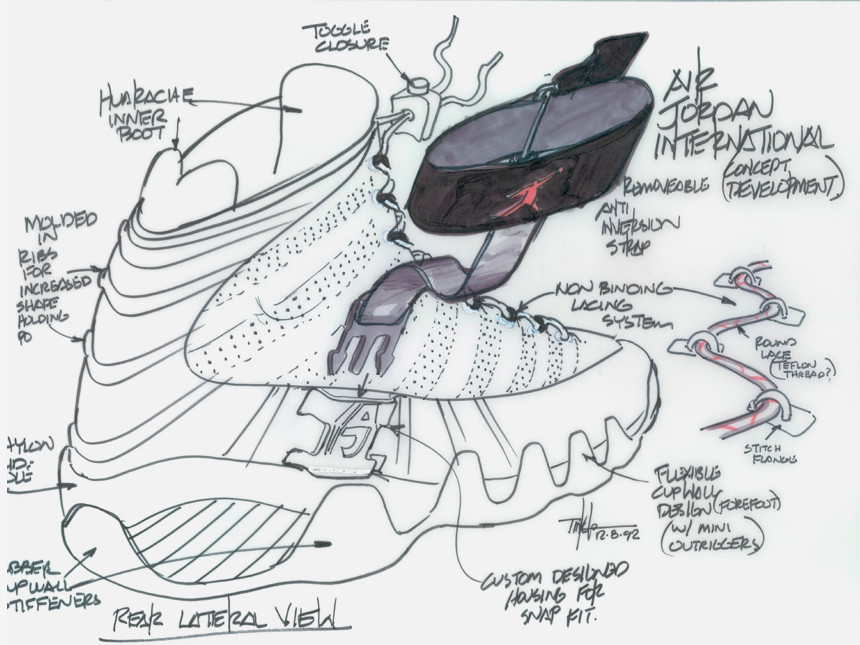 TOGGLE
CLOSURE
HUARACHE
INNER
BOOT
AIR
JORDAN
INTERNATIONAL
(CONCEPT
DEVELOPMENT)
REMOVEABLE
ANTI
INVERSION
STRAP
MOLDED
IN
RIBS
FOR
INCREASED
SHAPE
HOLDING
PO
NON BINDING
LACING
SYSTEM
ROUND
LACE
(TEFLON
THREAD?)
STITCH
FLANGE
HYLON
ID-
OLE
FLEXIBLE
CUPWALL
DESIGN (FOREFOOT)
W/ MINI
OUTRIGGERS)
12.8.92
CUSTOM DESIGNED
HOUSING FOR
SNAP KIT.
BBER
UPWALL
STIFFENERS
REAR LATERAL VIEW